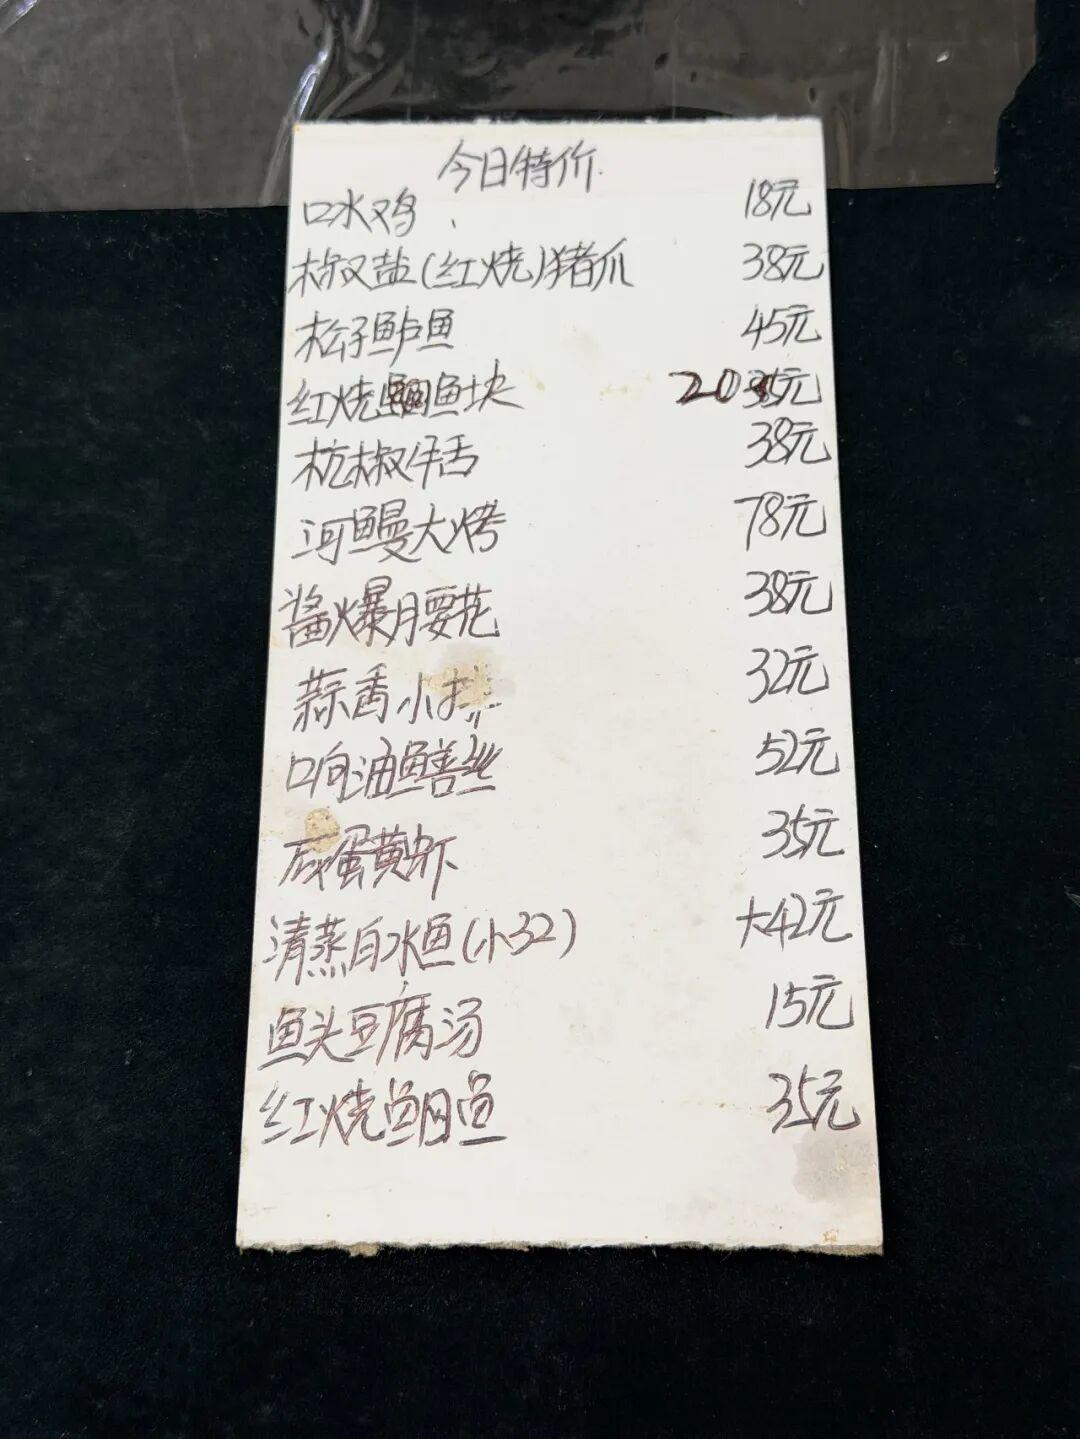 今日特价
口水鸡 18元
椒盐(红烧)猪爪 38元
松子鲈鱼 45元
红烧鱼块 20元
杭椒牛舌 38元
河鳗大烤 78元
酱爆腰花 38元
蒜香小排 32元
响油鳝丝 52元
咸蛋黄虾 35元
清蒸白水鱼(小32) 大42元
鱼头豆腐汤 15元
红烧鲳鱼 35元